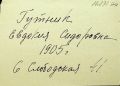 Гутник
Евдокия Сидоровна
1905 г.
6 Слободская 41